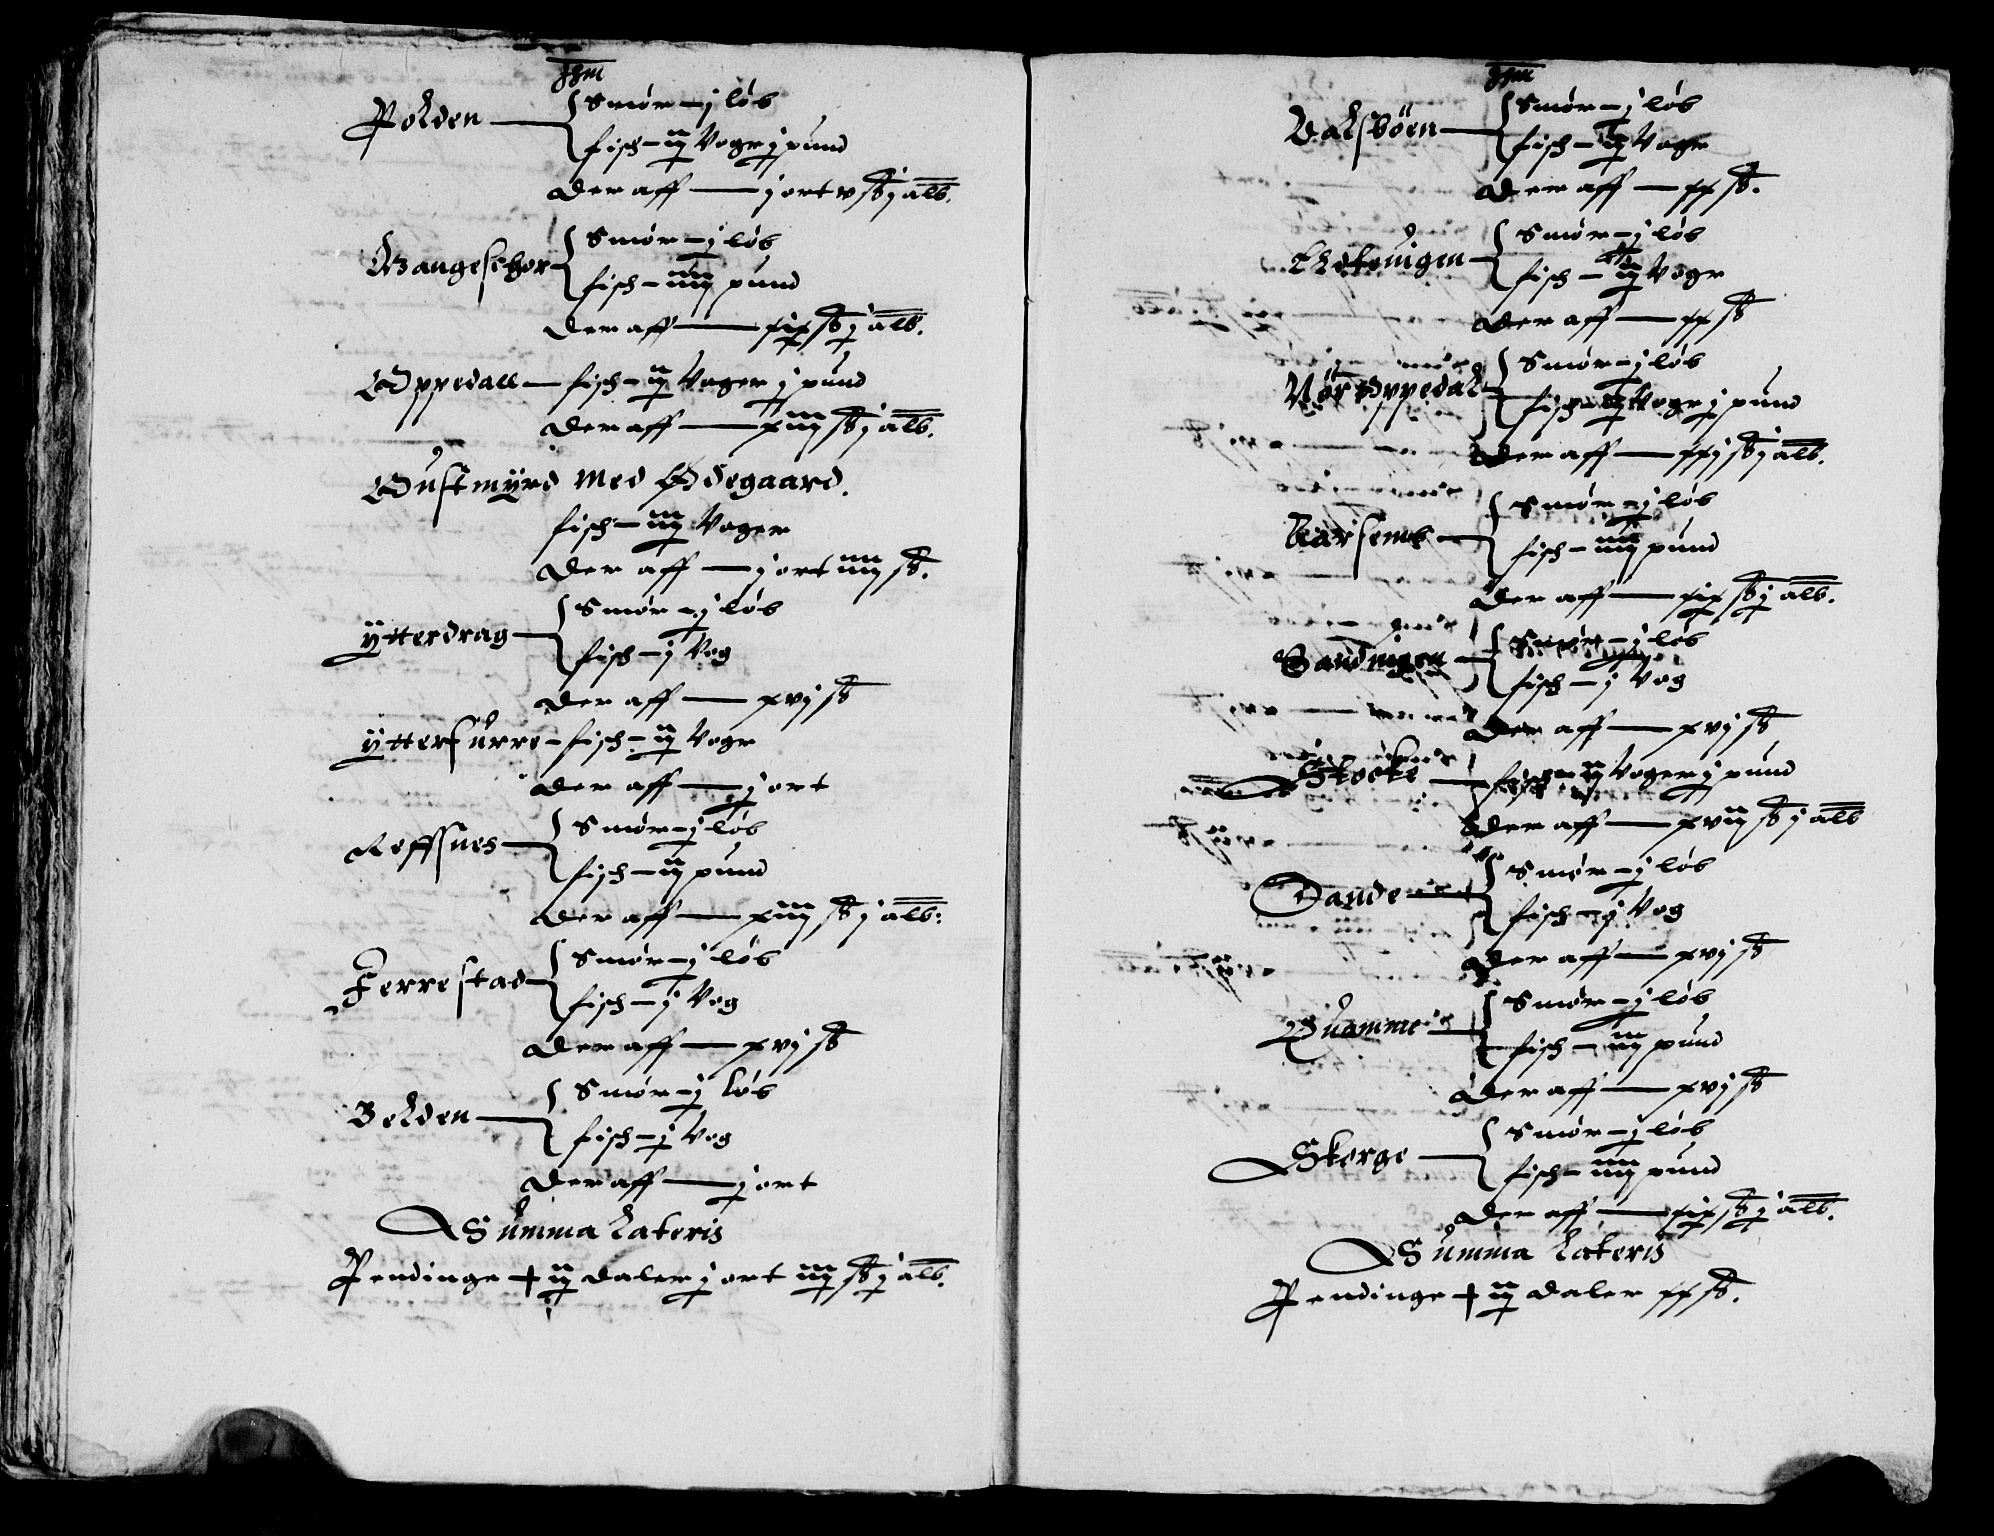 Ihm
Polden { Smør – j løb
fisch – ij Voger j pund
der aff — j ort v ß j alb.
Wangeschor { Smør – j løb
fisch – iiij pund
der aff — xix ß j alb.
Oppedall — fisch – ij Voger j pund
der aff — xiiij ß j alb.
Gustmyrd med Ødegaard.
fisch – iij Voger
der aff — j ort iiij ß.
Ytterdrag { Smør – j løb
fisch – j Vog
der aff — xvj ß
Yttersurre – fisch – ij Vogr
der aff — j ort
Reffsnes { Smør – j løb
fisch – ij pund
der aff — xiiij ß j alb:
Ferrestad { Smør – j løb
fisch – j Vog
der aff — xvj ß
Belden { Smør – j løb
fisch – j Vog
der aff — j ort
Summa Lateris
Pendinge + ij daler j ort iij ß j alb.
Ihm
Valsbøen { Smør – j løb
fisch – ij Vogr
der aff — xx ß.
{ Smør – j løb
fisch – ij Vogr
der aff — xx ß
Nør Oppedal { Smør – j løb
fisch – Vogr j pund
der aff — xxj ß j alb.
{ Smør – j løb
fisch – iiij pund
der aff — xix ß j alb.
Sandnigen { Smør – j løb
fisch – j Vog
der aff — xvj ß
Skocke { fisch – ij Voger j pund
der aff — xvij ß j alb
Sande { Smør – j løb
fisch – j Vog
der aff — xvj ß
Quamme { Smør – j løb
fisch – iij pund
der aff — xvj ß
Skorge { Smør – j løb
fisch – iiij pund
der aff — xix ß j alb.
Summa Lateris
Pendinge + ij daler xx ß.